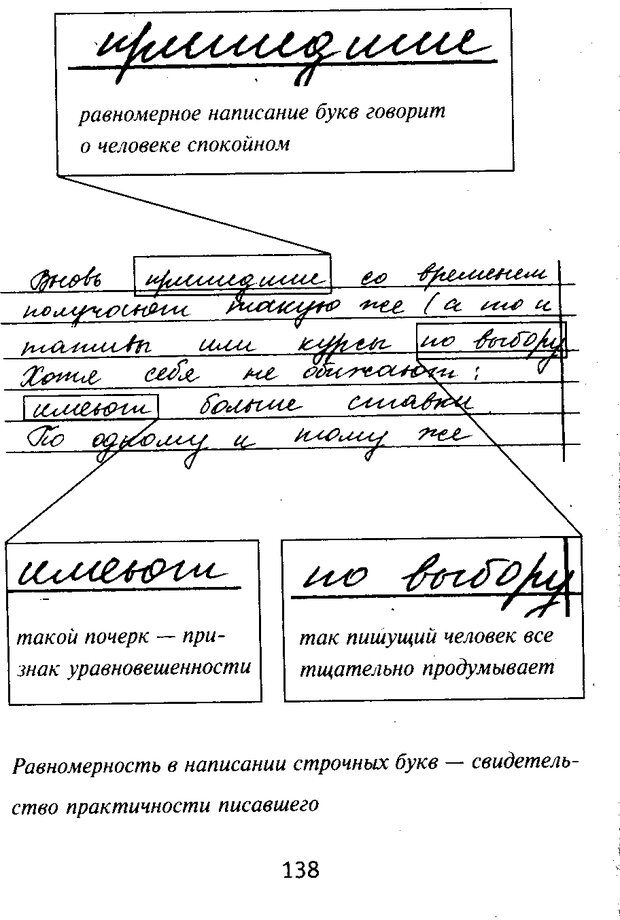 пришедшие
равномерное написание букв говорит
о человеке спокойном
Вновь пришедшие со временем
получают такую же (а то и
таты или курсы по выбору
Хотя себя не обижают:
имеют больше ставки
По одному и тому же
имеют
по выбору
такой почерк — при-
знак уравновешенности
так пишущий человек все
тщательно продумывает
Равномерность в написании строчных букв — свидетель-
ство практичности писавшего
138